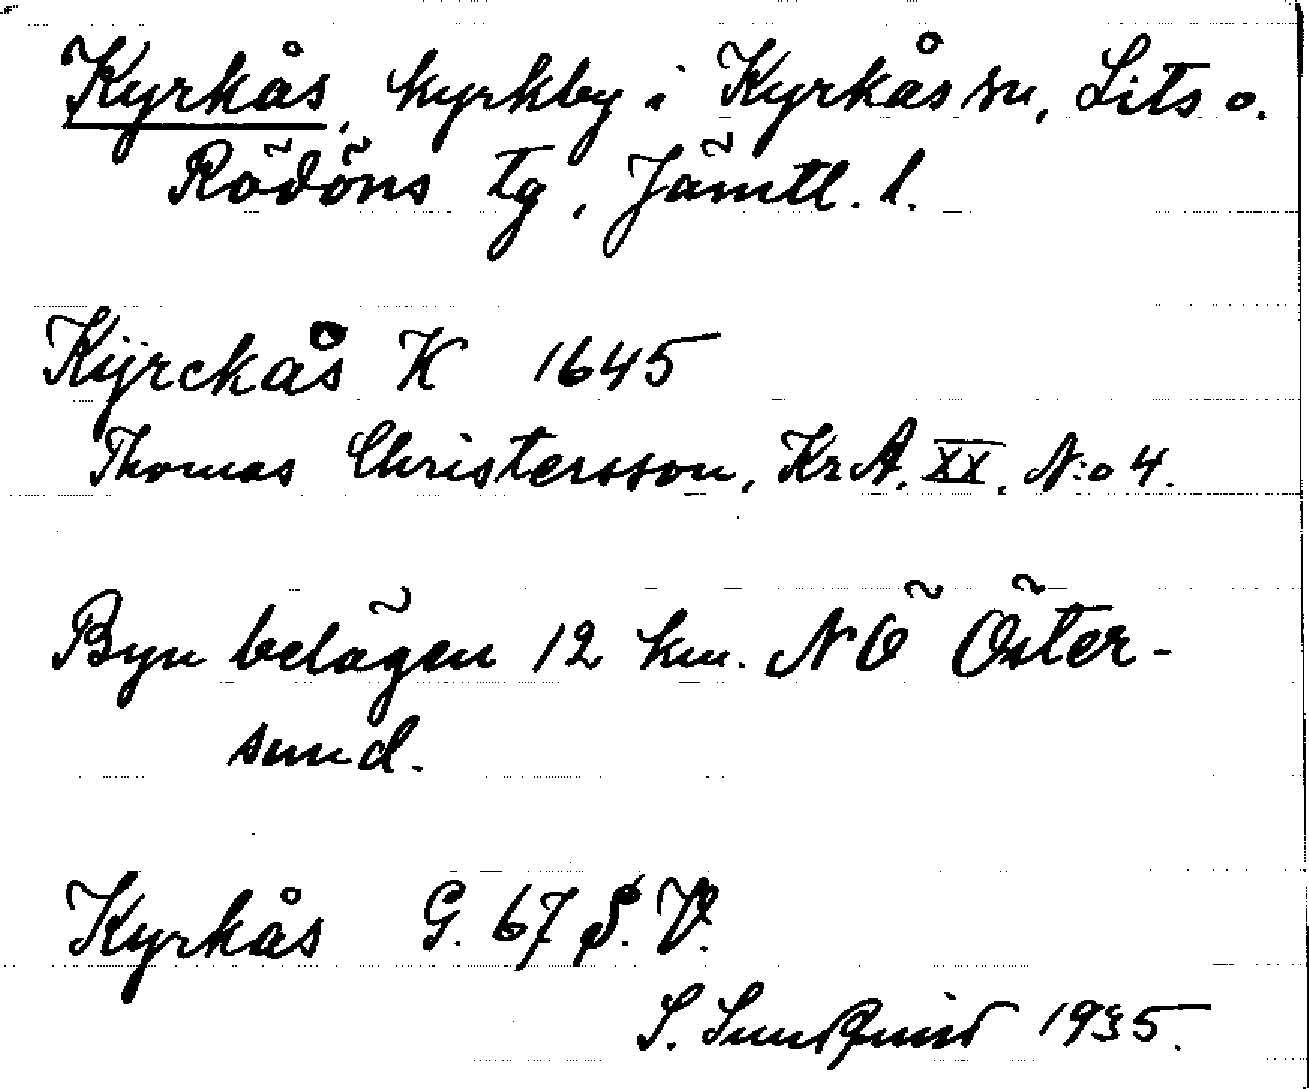 Kyrkås, kyrkby i Kyrkås sn, Lits o.
Rödöns tg, Jämtl. l.
Kÿrckås K 1645
Thomas Christersson, KrA. XX. N:o 4.
Byn belägen 12 km. NÖ Öster-
sund.
Kyrkås G. 67 S. V.
S. Sundquist 1935.